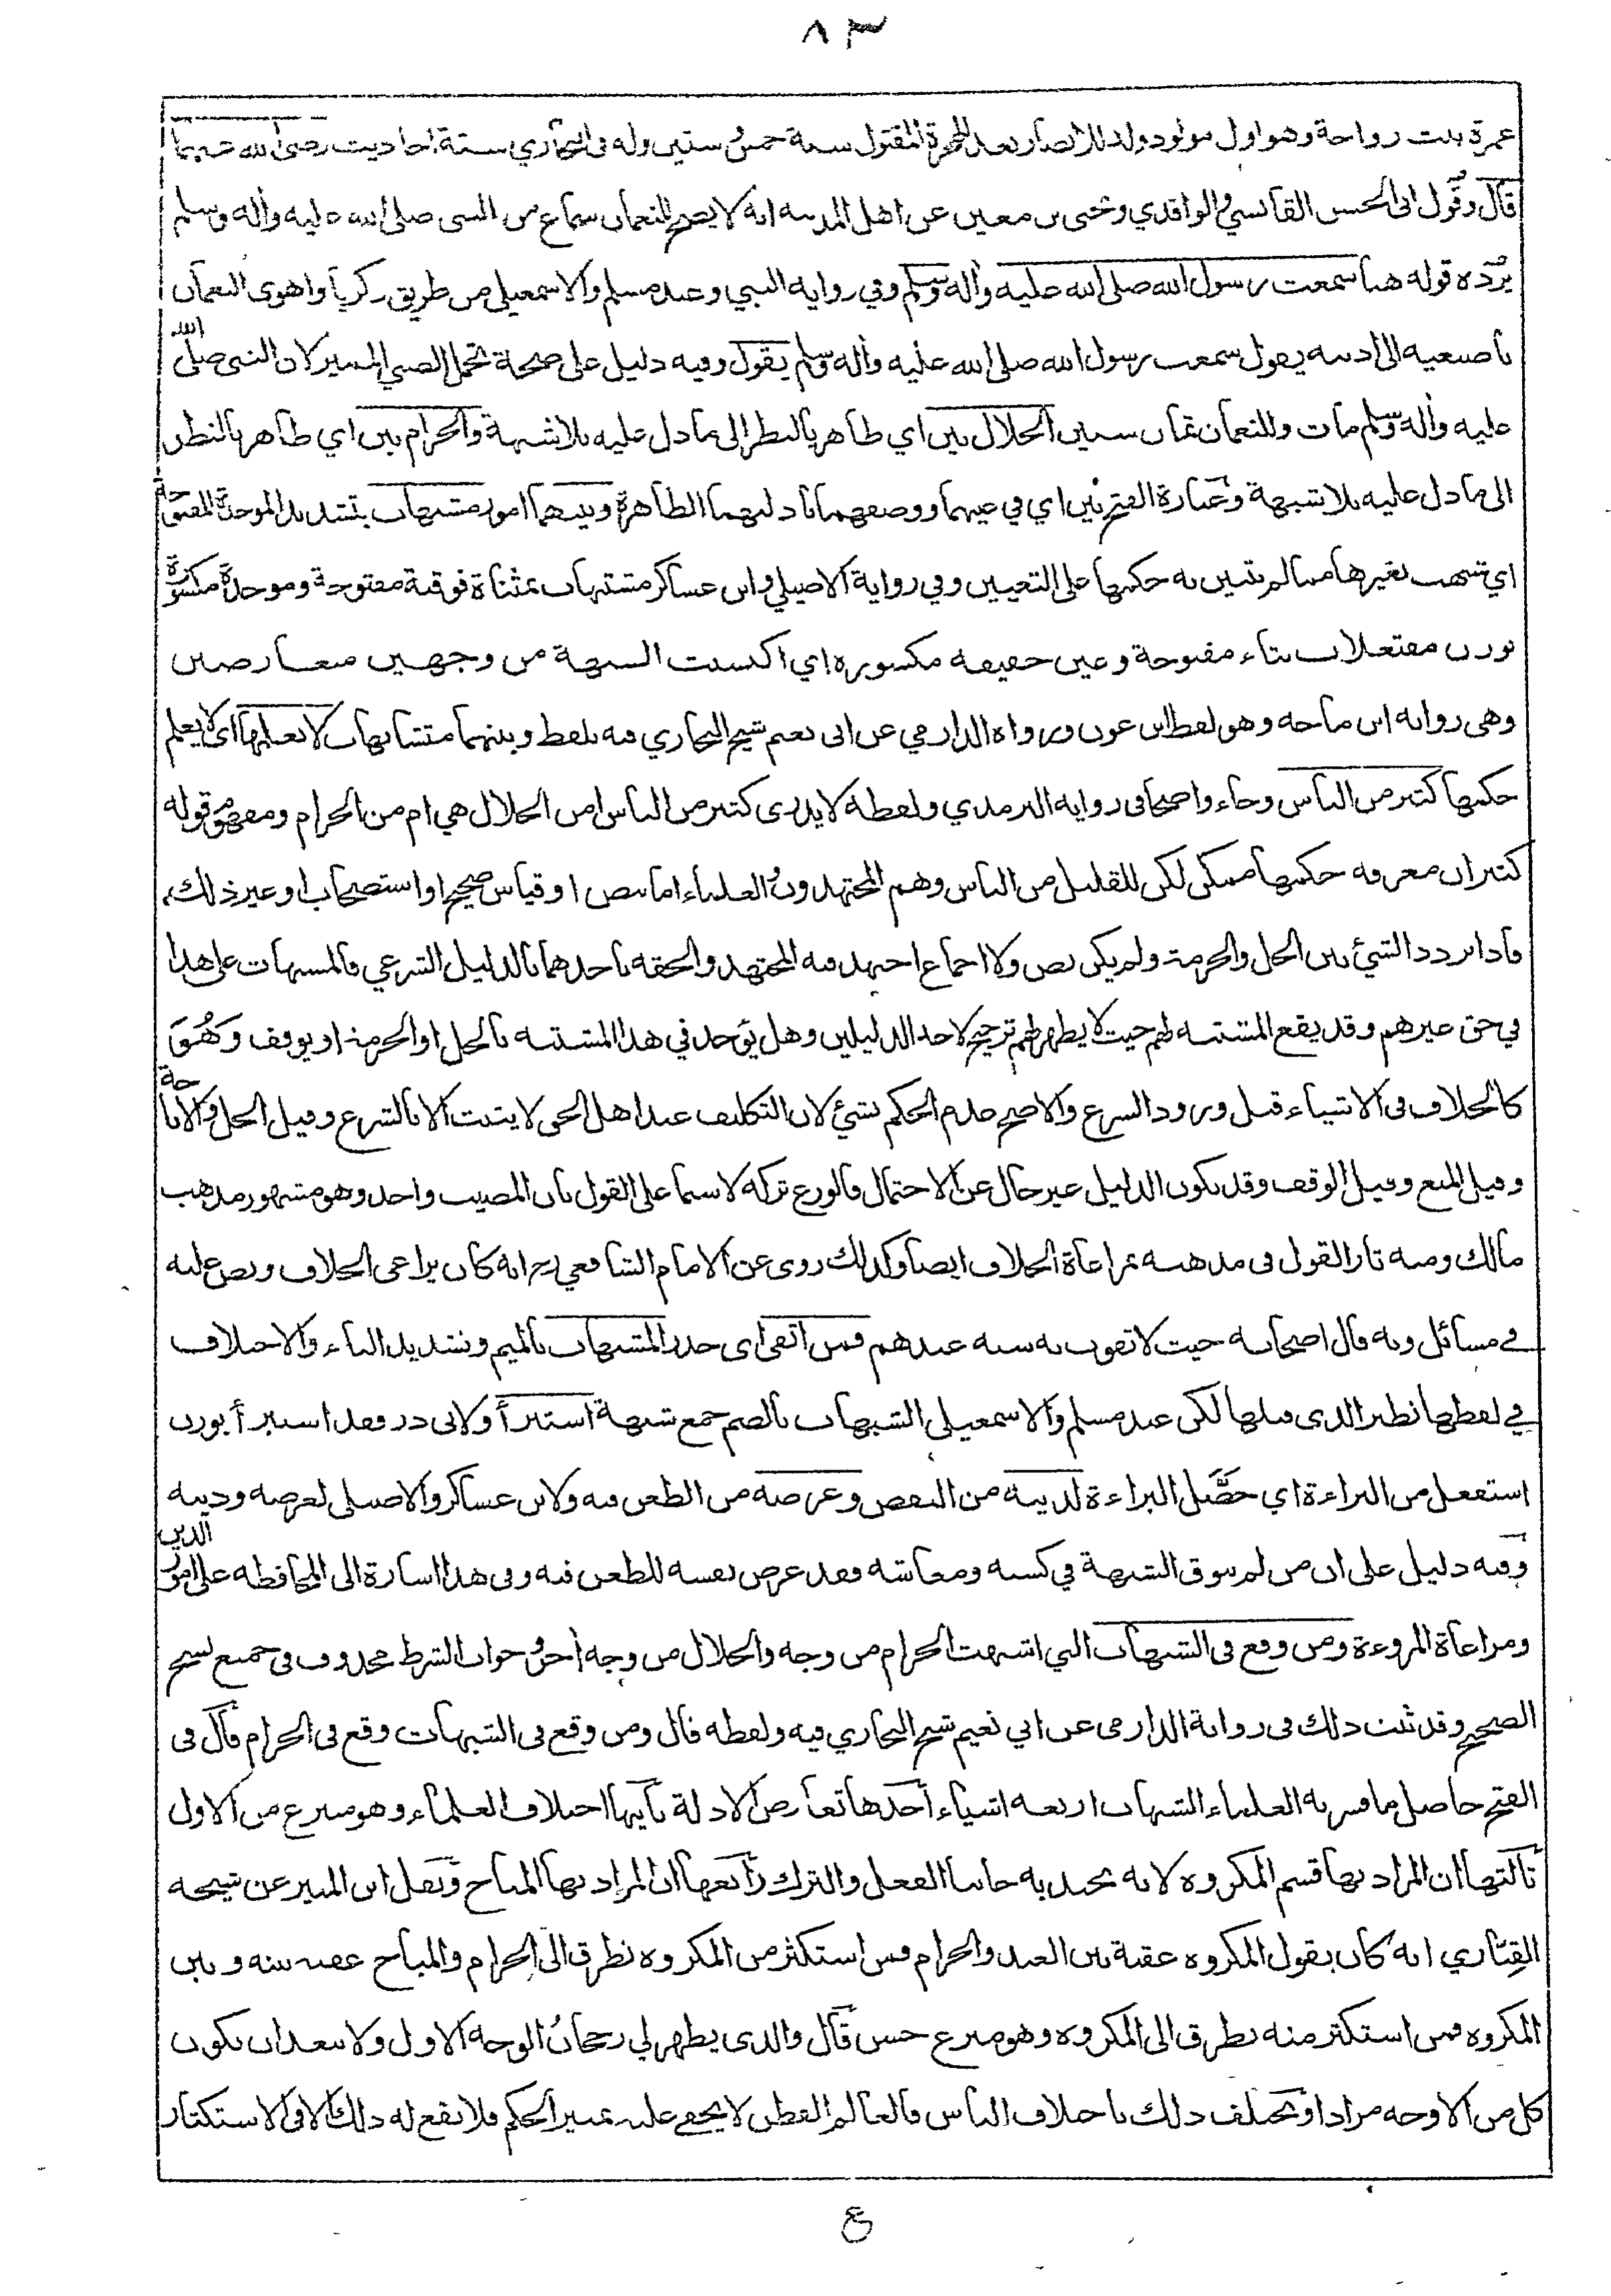 ٨٣
عمرة بنت رواحة وهو اول مولود ولد للانصار بعد الهجرة المقتول سنة خمس وستين وله في البخاري ستة احاديث رضي الله عنهما
قال وقول ابى الحسن القابسي والواقدي ويحيى بن معين عن اهل المدينه انه لا يصح للنعمان سماع من النبى صلى الله عليه وأله وسلم
يرده قوله هنا سمعت رسول الله صلى الله عليه وأله وسلم وفي رواية النبي وعند مسلم والاسمعيلي من طريق زكريا واهوى النعمان
باصبعيه الى اذنيه يقول سمعت رسول الله صلى الله عليه وأله وسلم يقول وفيه دليل على صحة تحمل الصبي المميز لان النبى صلى الله
عليه وأله وسلم مات وللنعمان ثمان سنين الحلال بين اي ظاهر بالنظر الى ما دل عليه بلا شبهة والحرام بين اي ظاهر بالنظر
الى ما دل عليه بلا شبهة وعبارة الفتح بين اي في عينهما ووصفهما بادلتهما الظاهرة وبينهما امور مشبهات بتشديد الموحدة المفتوحة
اي شبهت بغيرها مما لم يتبين به حكمها على التعيين وفي رواية الاصيلي وابن عساكر مشتبهات بمثناة فوقية مفتوحة وموحدة مكسورة
بوزن مفتعلات بتاء مفتوحة وعين خفيفه مكسوره اي اكتسبت الشبهة من وجهين متعارضين
وهى رواية ابن ماجه وهو لفظ ابن عون ورواه الدارمي عن ابى نعيم شيخ البخاري فيه بلفظ وبينهما متشابهات لا يعلمها اى لا يعلم
حكمها كثير من الناس وجاء واضحا فى رواية الترمذي ولفظه لا يدرى كثير من الناس امن الحلال هي ام من الحرام ومفهوم قوله
كثير ان معرفة حكمها ممكن لكن للقليل من الناس وهم المجتهدون والعلماء اما بنص او قياس صحيح او استصحاب او غير ذلك،
فاذا تردد الشيئ بين الحل والحرمة ولم يكن نص ولا اجماع اجتهد فيه المجتهد والحقه باحدهما بالدليل الشرعي فالمشبهات على هذا
في حق غيرهم وقد يقع المشتبه لهم حيث لا يظهر لهم ترجيح لاحد الدليلين وهل يؤخذ في هذا المشتبه بالحل او الحرمة او يوقف وهُوَ
كالخلاف فى الاشياء قبل ورود الشرع والاصح عدم الحكم بشئ لان التكليف عند اهل الحق لا يثبت الا بالشرع وقيل الحل والاباحة
وقيل المنع وقيل الوقف وقد يكون الدليل غير خال عن الاحتمال فالورع تركه لا سيما على القول بان المصيب واحد وهو مشهور مذهب
مالك ومنه ثار القول فى مذهبه بمراعاة الخلاف ايضا وكذلك روى عن الامام الشافعي رح انه كان يراعى الخلاف ونص عليه
في مسائل وبه قال اصحابه حيث لا تفوت به سنة عندهم فمن اتقى اى حذر المشبهات بالميم وتشديد الباء والاختلاف
في لفظها نظير الذى قبلها لكن عند مسلم والاسمعيلي الشبهات بالضم جمع شبهة استبرأ ولابى ذر فقد استبرأ بوزن
استفعل من البراءة اي حصّل البراءة لدينه من النقص وعرضه من الطعن فيه ولابن عساكر والاصيلى لعرضه ودينه
وفيه دليل على ان من لم يتوق الشبهة في كسبه ومعاشه فقد عرض نفسه للطعن فيه وفى هذا اشارة الى المحافظه على امور الدين
ومراعاة المروءة ومن وقع فى الشبهات التي اشبهت الحرام من وجه والحلال من وجه أخر وجواب الشرط محذوف فى جميع نسخ
الصحيح وقد ثبت ذلك فى رواية الدارمى عن ابي نعيم شيخ البخاري فيه ولفظه قال ومن وقع فى الشبهات وقع فى الحرام قال فى
الفتح حاصل ما فسر به العلماء الشبهات اربعه اشياء أحدها تعارض الادلة ثانيها اختلاف العلماء وهو منتزع من الاول
ثالثها ان المراد بها قسم المكروه لانه يجتذبه جانبا الفعل والترك رابعها ان المراد بها المباح ونقل ابن المنير عن شيخه
القبّاري انه كان يقول المكروه عقبة بين العبد والحرام فمن استكثر من المكروه تطرق الى الحرام والمباح عقبه بينه وبين
المكروه فمن استكثر منه تطرق الى المكروه وهو منزع حسن قال والذى يظهر لي رجحان الوجه الاول ولا يبعد ان يكون
كل من الاوجه مرادا ويختلف ذلك باختلاف الناس فالعالم الفطن لا يخفى عليه تمييز الحكم فلا يقع له ذلك الا فى الاستكثار